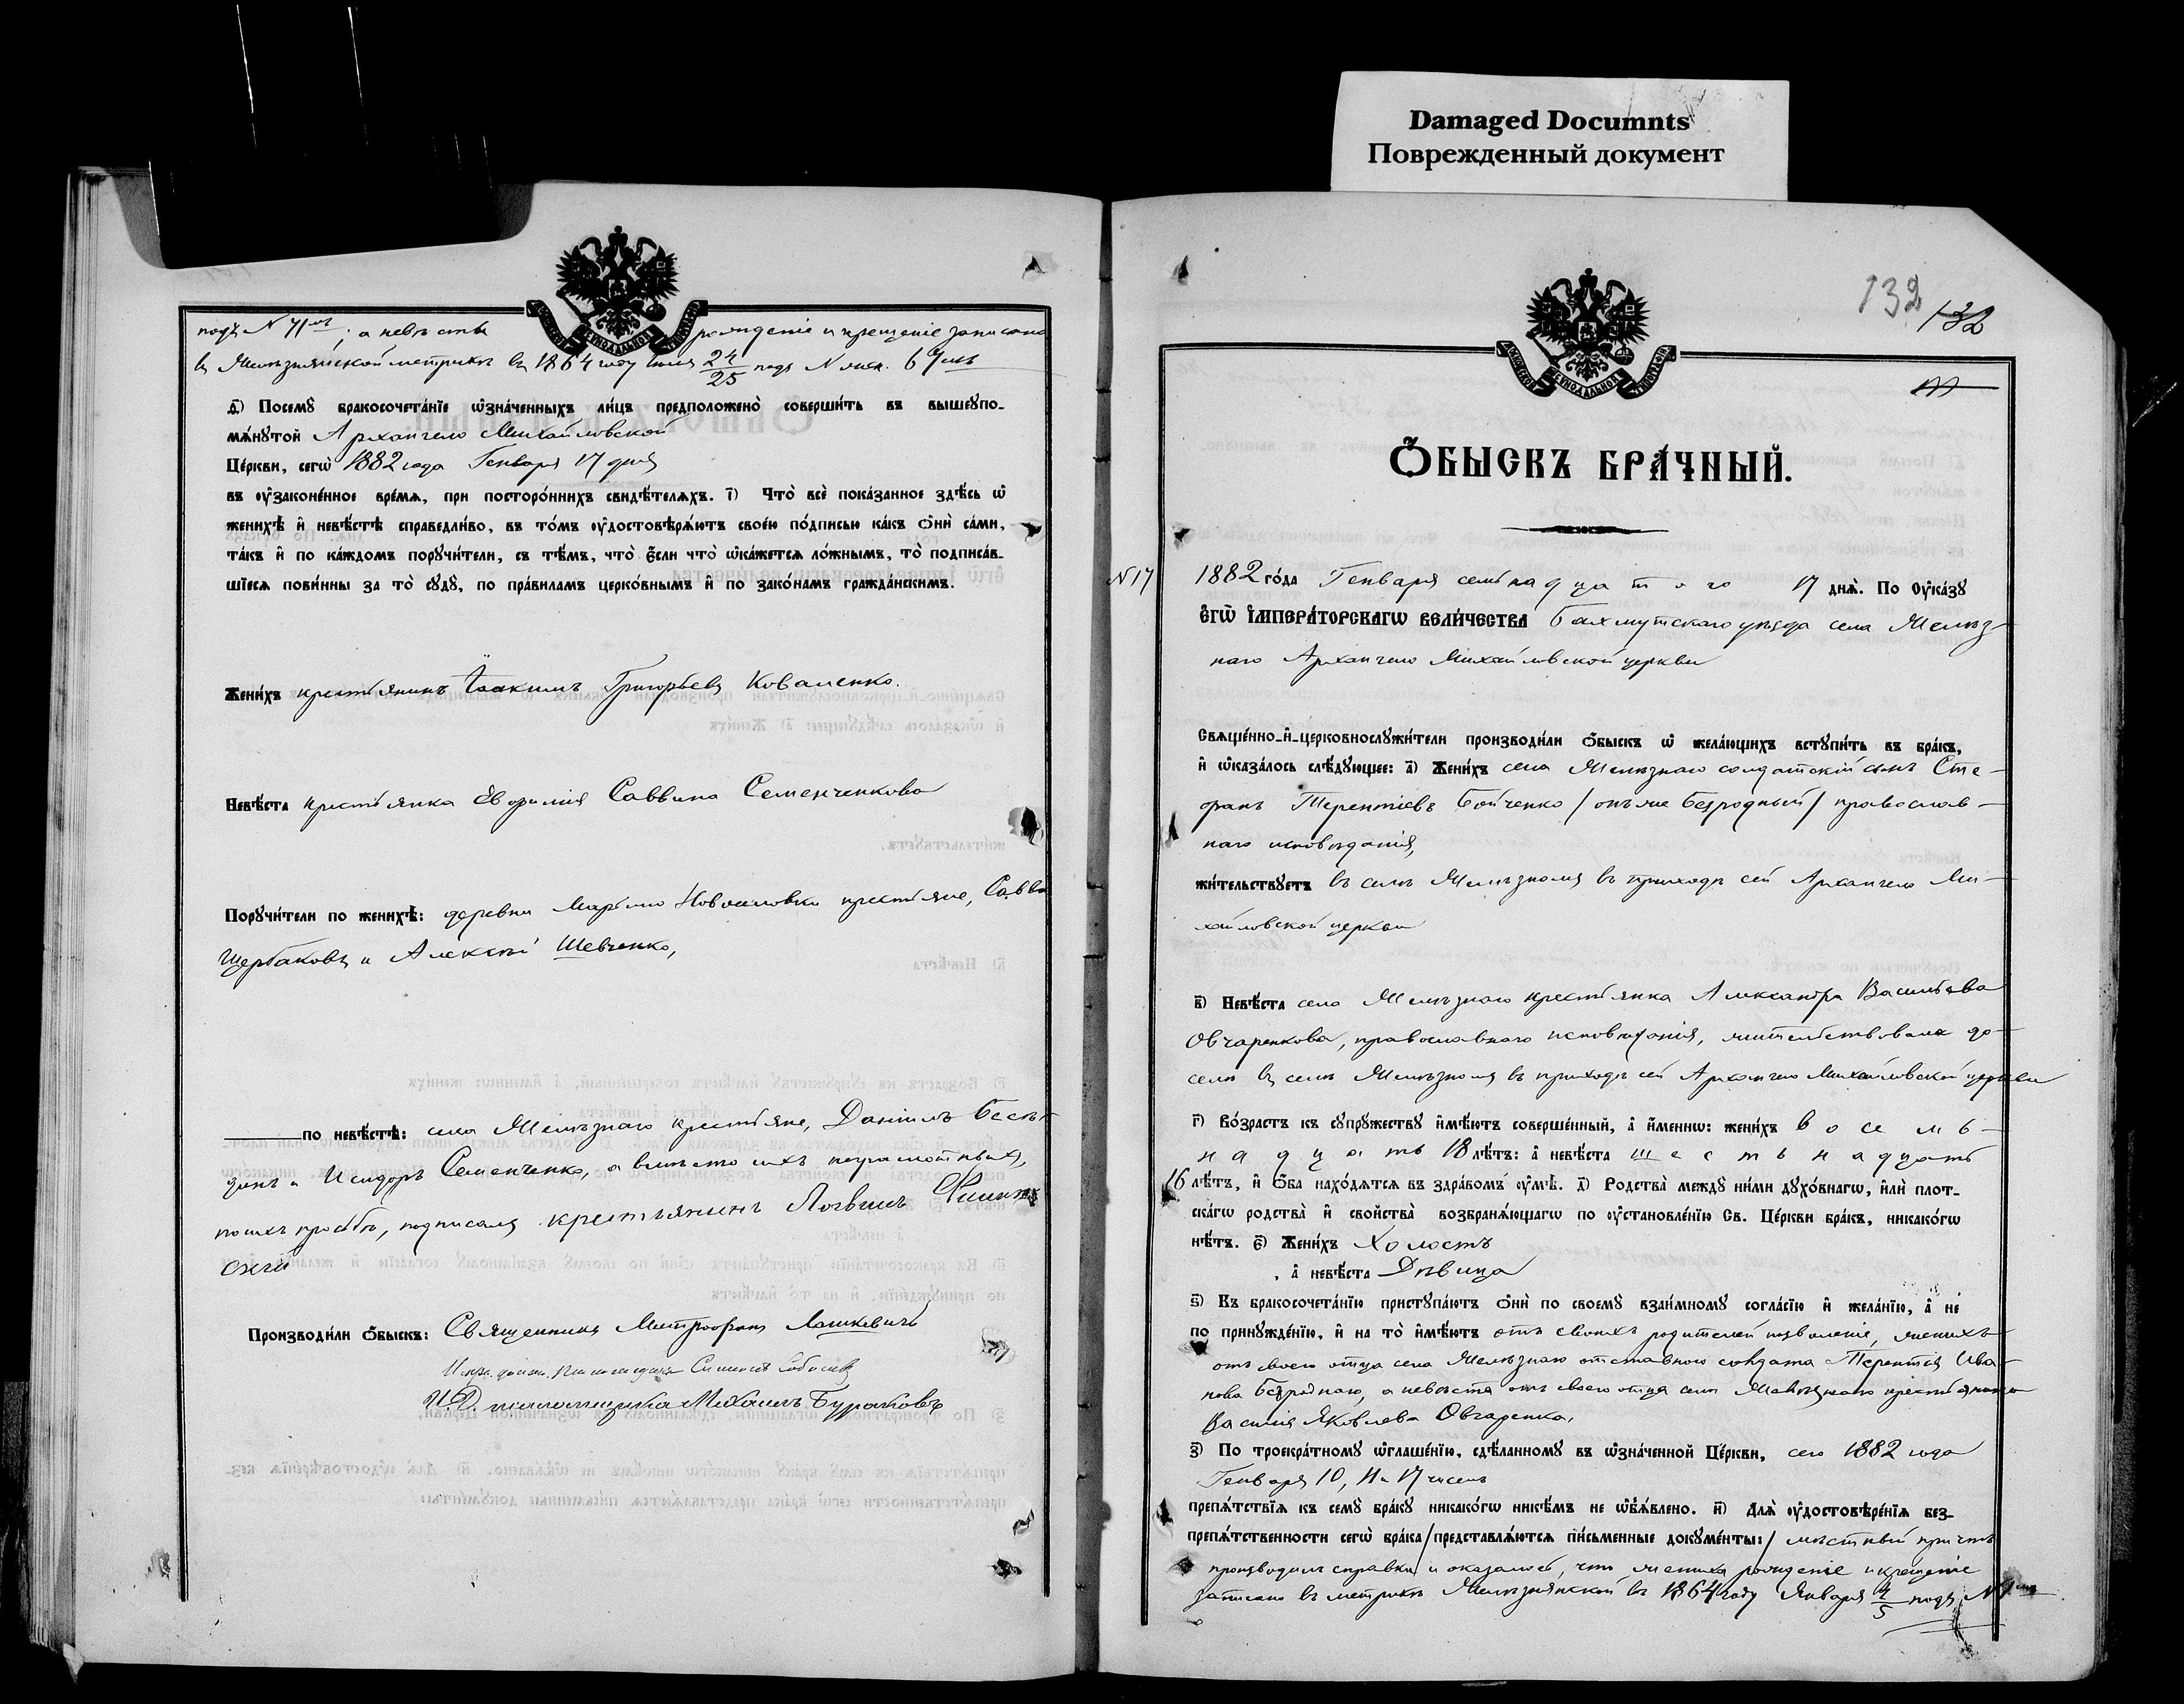 Damaged Documnts
Поврежденный документ
подъ N 71мъ; а невѣсты рожденіе и крещеніе записано
въ Желѣзнянской метрикѣ въ 1864 году 24/25 подъ N жен. 67мъ
д҃) Посемꙋ бракосочета́нїе ѡ҆зна́ченныхъ ли́цъ предположено̀ соверши́ть въ вышеꙋпо-
мѧ́нꙋтой Архангело Михайловской
Це́ркви, сегѡ̀ 1882 года Генваря 17 дня
въ ᲂу҆законе́нное вре́мѧ, при посторо́ннихъ свидѣ́телѧхъ. і҃) Что̀ всѐ пока́занное здѣ́сь ѡ҆
женихѣ̀ и҆ невѣ́стѣ справедли́во, въ то́мъ ᲂу҆достовѣрѧ́ютъ свое́ю по́дписью ка́къ ѻ҆нѝ са́ми,
та́къ и҆ по ка́ждомъ порꙋчи́тели, съ тѣ́мъ, что̀ є҆́сли что̀ ѡ҆ка́жетсѧ ло́жнымъ, то̀ подписа́в-
шїесѧ пови́нны за то̀ сꙋдꙋ̀, по пра́виламъ церко́внымъ и҆ по зако́намъ гражда́нскимъ.
Жени́хъ крестьянинъ Іоакимъ Григорьевъ Коваленко.
Невѣ́ста крестьянка Евфимія Саввина Семенченкова
Порꙋчи́тели по женихѣ̀: деревни Марьино Новоселовки крестьяне, Савва
Щербаковъ и Алексѣй Шевченко,
по невѣ́стѣ: села Желѣзнаго крестьяне, Даніилъ Бесѣ-
динъ и Исидоръ Семенченко, а вмѣсто ихъ неграмотныхъ,
по ихъ просьбѣ, подписался крестьянинъ Логвинъ
скій
Производи́ли ѻ҆́быскъ: Священникъ Митрофанъ Лашкевичъ
И. Д. псаломщика Михаилъ Бураковъ
132 132
Ѻ҆́БЫСКЪ БРА́ЧНЫЙ.
N 17
1882 го́да Генваря семнадцатаго 17 днѧ̀. По Оу҆ка́зꙋ
є҆гѡ̀ і҆мпера́торскагѡ вели́чества Бахмутскаго уѣзда села Желѣз-
наго Архангело Михайловской церкви
Свѧще́нно-и҆-церковнослꙋжи́тели производи́ли ѻ҆́быскъ ѡ҆ жела́ющихъ встꙋпи́ть въ бра́къ,
и҆ ѡ҆каза́лось слѣ́дꙋющее: а҃) Жени́хъ села Желѣзнаго солдатскій сынъ Сте-
фанъ Терентіевъ Бойченко /онъ же Безродный/ православ-
наго исповѣданія,
жи́тельствꙋетъ въ селѣ Желѣзномъ въ приходѣ сей Архангело Ми-
хайловской церкви
в҃) Невѣ́ста села Желѣзнаго крестьянка Александра Васильева
Овчаренкова, православнаго исповѣданія, жительствовала до-
селѣ въ селѣ Желѣзномъ въ приходѣ сей Архангело Михайловской церкви
г҃) Во́зрастъ къ сꙋпрꙋ́жествꙋ и҆мѣ́ютъ соверше́нный, а҆ и҆́меннѡ: жени́хъ восемь-
надцать 18 лѣ́тъ: а҆ невѣ́ста шестьнадцать
16 лѣ́тъ, и҆ ѻ҆́ба нахо́дѧтсѧ въ здра́вомъ ᲂу҆мѣ̀. д҃) Родства̀ междꙋ ни́ми дꙋхо́внагѡ, и҆лѝ плот-
ска́гѡ родства̀ и҆ сво́йства̀ возбранѧ́ющагѡ по ᲂу҆становле́нїю Св. Це́ркви бра́къ, никако́гѡ
нѣ́тъ. є҃) Жени́хъ Холостъ
, а҆ невѣ́ста Дѣвица
ѕ҃) Къ бракосочета́нїю пристꙋпа́ютъ ѻ҆нѝ по своемꙋ̀ взаи́мномꙋ согла́сїю и҆ жела́нїю, а҆ не
по принꙋжде́нїю, и҆ на то̀ и҆мѣ́ютъ отъ своихъ родителей позволеніе, женихъ
отъ своего отца села Желѣзнаго отставнаго солдата Терентія Ива-
нова Безроднаго, а невѣста отъ своего отца села Желѣзнаго крестьянина
Василія Яковлева Овчаренка.
з҃) По троекра́тномꙋ ѡ҆глаше́нїю, сдѣ́ланномꙋ въ ѡ҆зна́ченной Це́ркви, сего 1882 года
Генваря 10, 11 и 17 чиселъ
препѧ́тствїѧ къ семꙋ̀ бра́кꙋ никако́гѡ никѣ́мъ не ѡ҆б̾ѧ́влено. и҃) Длѧ̀ ᲂу҆достовѣре́нїѧ без-
препѧ́тственности сегѡ̀ бра́ка /представлѧ́ютсѧ пи́сьменные докꙋме́нты:/ мѣстный причтъ
производилъ справки и оказалось, что жениха рожденіе и крещеніе
записано въ метрикѣ Желѣзнянской въ 1864 году Января 4/5 подъ N 1мъ